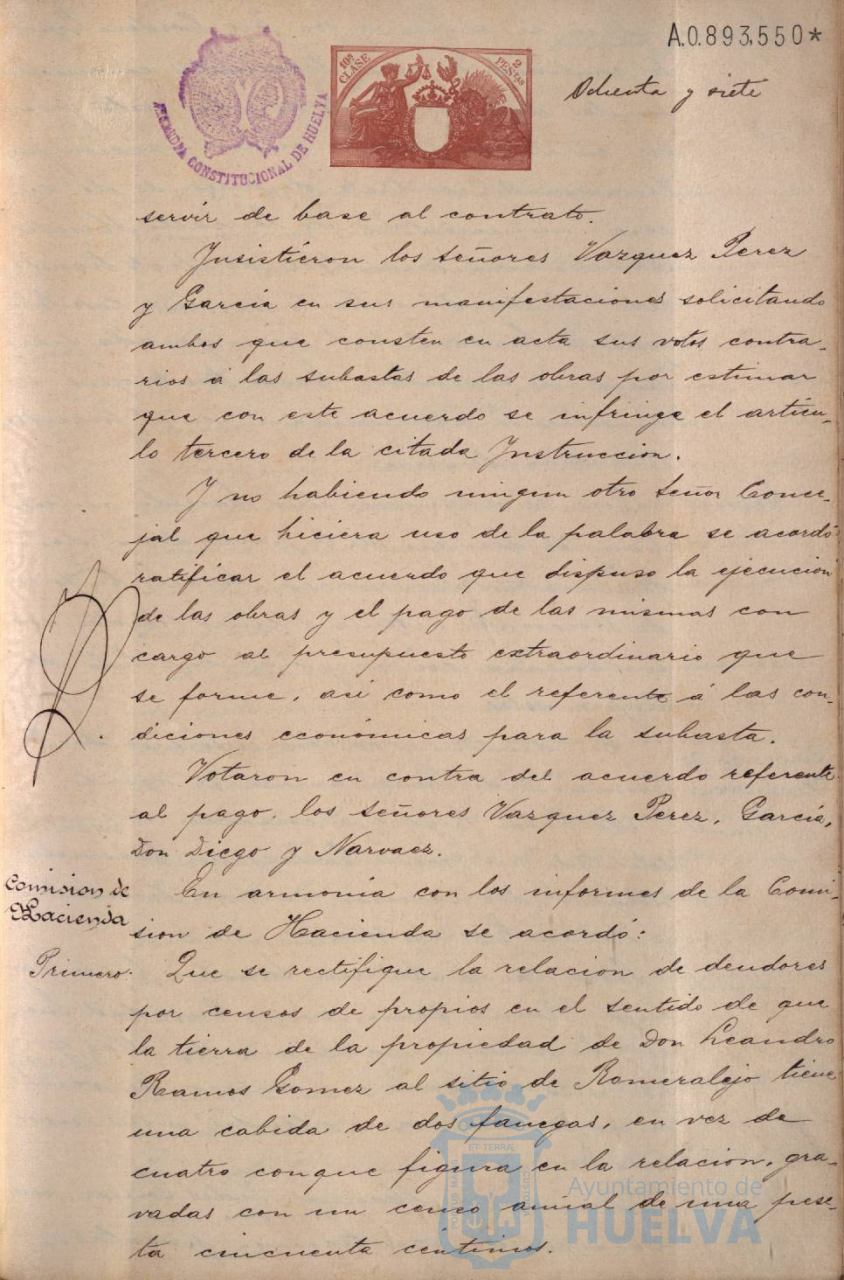 A.0.893,550*
10ª CLASE
2 PESETAS
ALCALDIA CONSTITUCIONAL DE HUELVA
Ochenta y siete
servir de base al contrato.
Insistieron los señores Vazquez Perez
y García en sus manifestaciones solicitando
ambos que consten en acta sus votos contra-
rios á las subastas de las obras por estimar
que con este acuerdo se infringe el articu-
lo tercero de la citada Instruccion.
Y no habiendo ningun otro Señor Conce-
jal que hiciera uso de la palabra se acordó
ratificar el acuerdo que dispuso la ejecucion
de las obras y el pago de las mismas con
cargo al presupuesto extraordinario que
se forme, asi como el referente á las con-
diciones económicas para la subasta.
Votaron en contra del acuerdo referente
al pago, los señores Vazquez Perez, García,
Don Diego y Narvaez.
Comision de
Hacienda
En armonia con los informes de la Comi-
sion de Hacienda se acordó:
Primero. Que se rectifique la relacion de deudores
por censos de propios en el sentido de que
la tierra de la propiedad de Don Leandro
Ramos Gomez al sitio de Romeralejo tiene
una cabida de dos fanegas, en vez de
cuatro conque figura en la relacion, gra-
vadas con un censo anual de una pese-
ta cincuenta centimos.
Ayuntamiento de
HUELVA